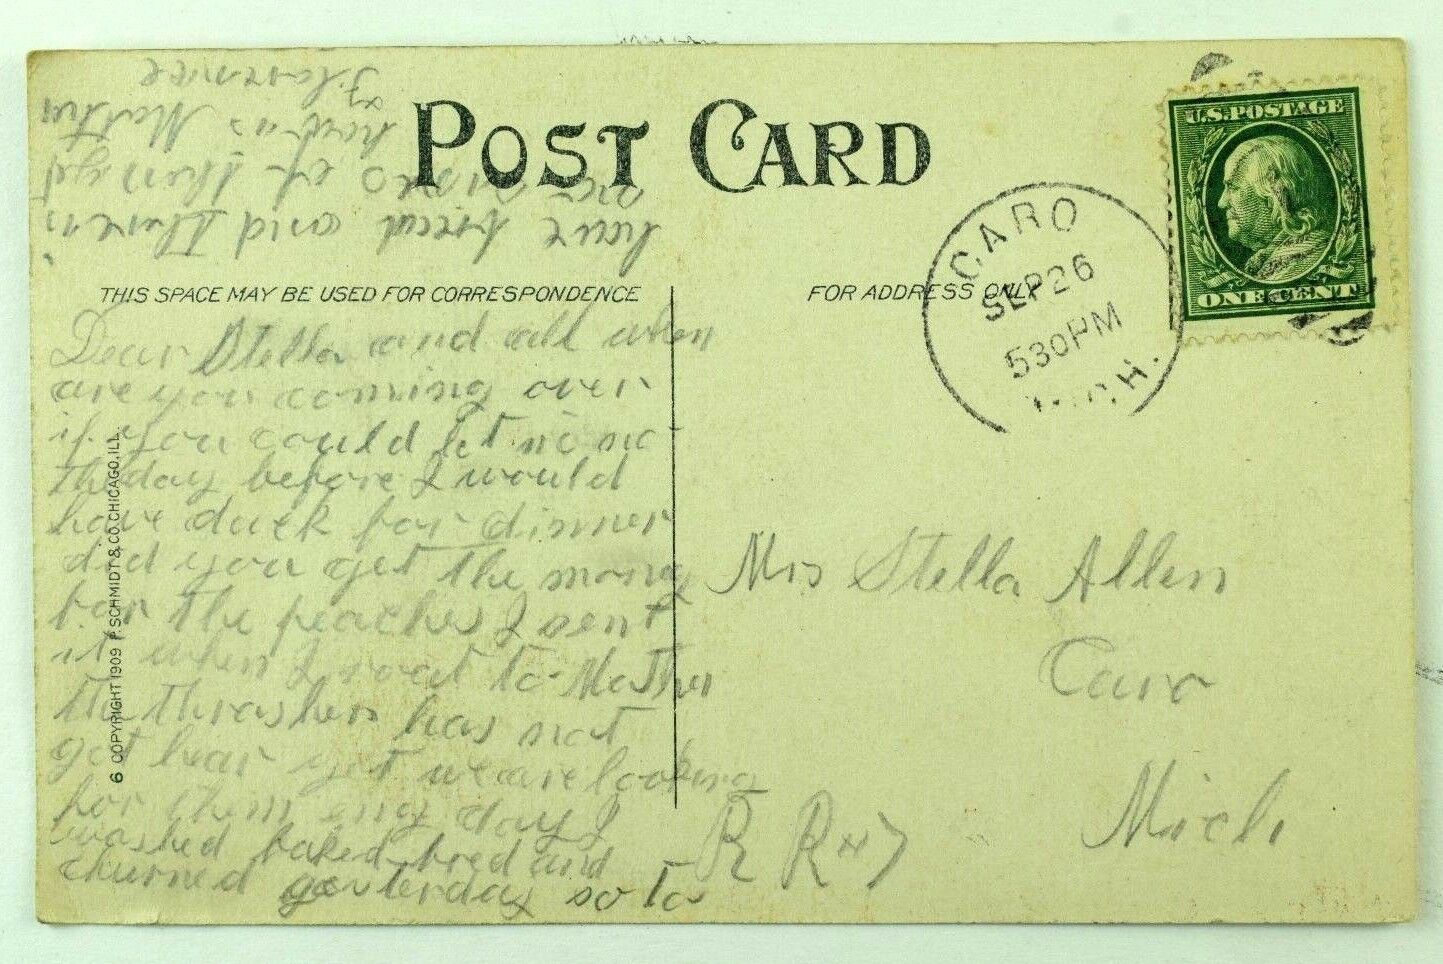 POST CARD
THIS SPACE MAY BE USED FOR CORRESPONDENCE
FOR ADDRESS ONLY
U.S. POSTAGE
ONE CENT
CARO
SEP 26
530 PM
MICH.
Dear Stella and all when
are you coming over
if you could let us no
the day before I would
have duck for dinner
did you get the mony
for the peaches I sent
it when I roat to Mother
the thrashers has not
got hear yet we are looking
for them eny day I
washed baked bred and
churned yesterday so to
have bred and
no
Florence
Mrs Stella Allen
Caro
Mich
R R #7
6 COPYRIGHT 1909 F. SCHMIDT & CO. CHICAGO, ILL.